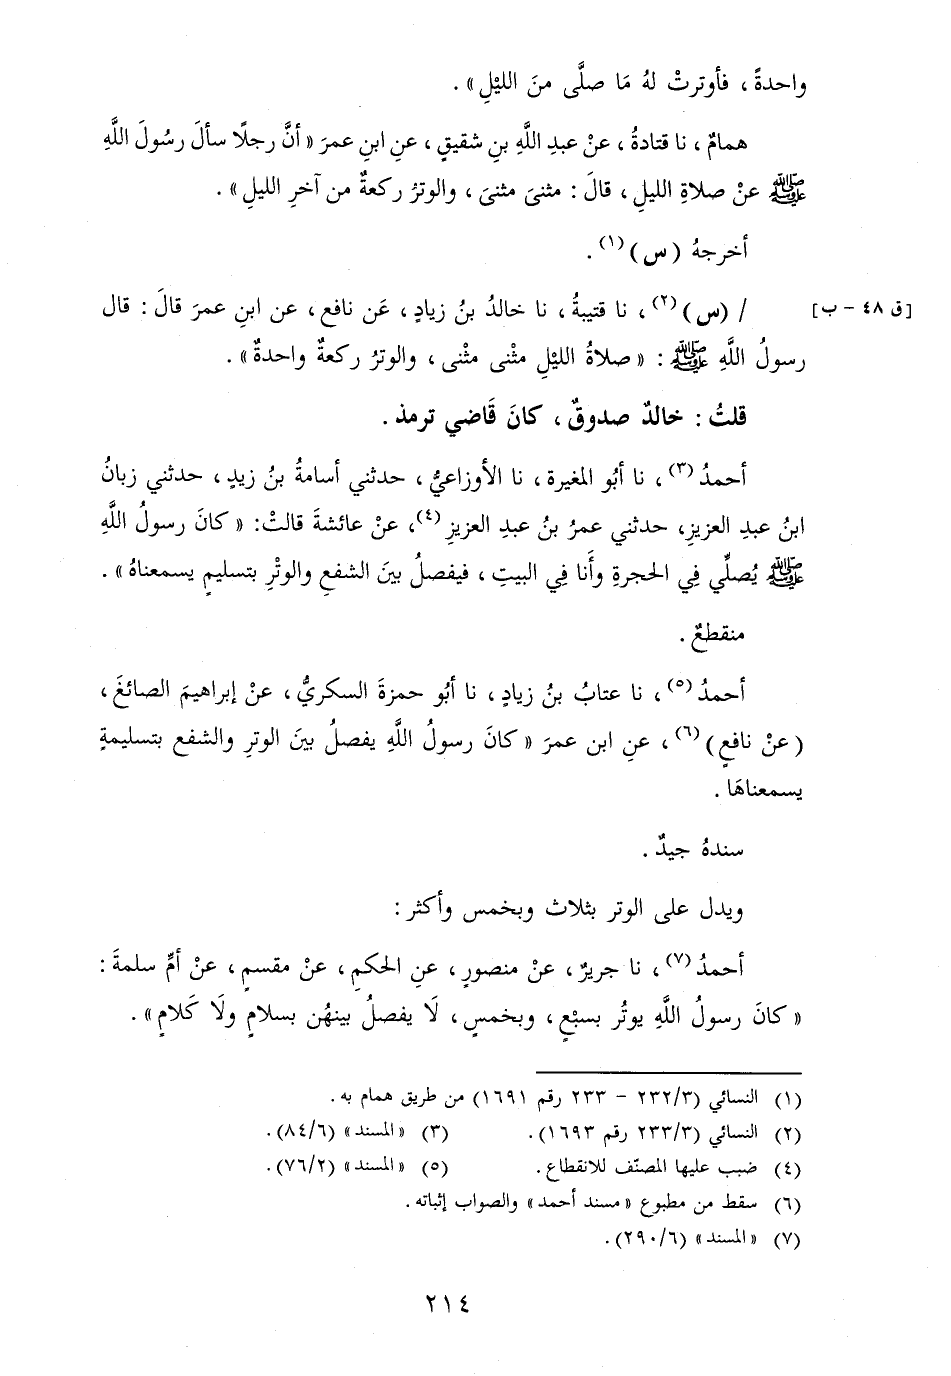 واحدةً ، فأوترتْ لهُ مَا صلَّى منَ الليْلِ » .
همامٌ ، نا قتادةُ ، عنْ عبدِ اللَّهِ بنِ شقيقٍ ، عنِ ابنِ عمرَ « أنَّ رجلًا سألَ رسُولَ اللَّهِ
ﷺ عنْ صلاةِ الليلِ ، قالَ : مثنىَ مثنىَ ، والوترُ ركعةٌ من آخرِ الليلِ » .
أخرجهُ ( س )(١) .
[ق ٤٨ - ب] / (س)(٢) ، نا قتيبةُ ، نا خالدُ بنُ زيادٍ ، عَن نافعٍ ، عن ابنِ عمرَ قالَ : قال
رسولُ اللَّهِ ﷺ : « صلاةُ الليْلِ مثْنى مثْنى ، والوترُ ركعةٌ واحدةٌ » .
قلتُ : خالدٌ صدوقٌ ، كانَ قَاضي ترمذ .
أحمدُ (٣) ، نا أبُو المغيرة ، نا الأوزاعيُّ ، حدثني أسامةُ بنُ زيدٍ ، حدثني زبانُ
ابنُ عبدِ العزيزِ، حدثني عمرُ بنُ عبدِ العزيزِ (٤)، عنْ عائشةَ قالتْ: « كانَ رسولُ اللَّهِ
ﷺ يُصلِّي فِي الحجرةِ وأَنا فِي البيتِ ، فيفصلُ بينَ الشفعِ والوتْرِ بتسليمٍ يسمعناهُ » .
منقطعٌ .
أحمدُ (٥) ، نا عتابُ بنُ زيادٍ ، نا أبُو حمزةَ السكريُّ ، عنْ إبراهيمَ الصائغَ ،
( عنْ نافعٍ ) (٦) ، عنِ ابن عمرَ « كانَ رسولُ اللَّهِ يفصلُ بينَ الوترِ والشفع بتسليمةٍ
يسمعناهَا .
سندهُ جيدٌ .
ويدل على الوتر بثلاث وبخمس وأكثر :
أحمدُ (٧) ، نا جريرٌ ، عنْ منصورٍ ، عنِ الحكمِ ، عنْ مقسمٍ ، عنْ أمِّ سلمةَ :
« كانَ رسولُ اللَّهِ يوتُر بسبْعٍ ، وبخمسٍ ، لَا يفصلُ بينهُن بسلامٍ ولَا كَلامٍ » .
(١) النسائي (٢٣٢/٣ - ٢٣٣ رقم ١٦٩١) من طريق همام به .
(٢) النسائي (٢٣٣/٣ رقم ١٦٩٣). (٣) « المسند » (٨٤/٦).
(٤) ضبب عليها المصنّف للانقطاع. (٥) « المسند » (٧٦/٢).
(٦) سقط من مطبوع « مسند أحمد » والصواب إثباته .
(٧) « المسند » (٢٩٠/٦) .
٢١٤